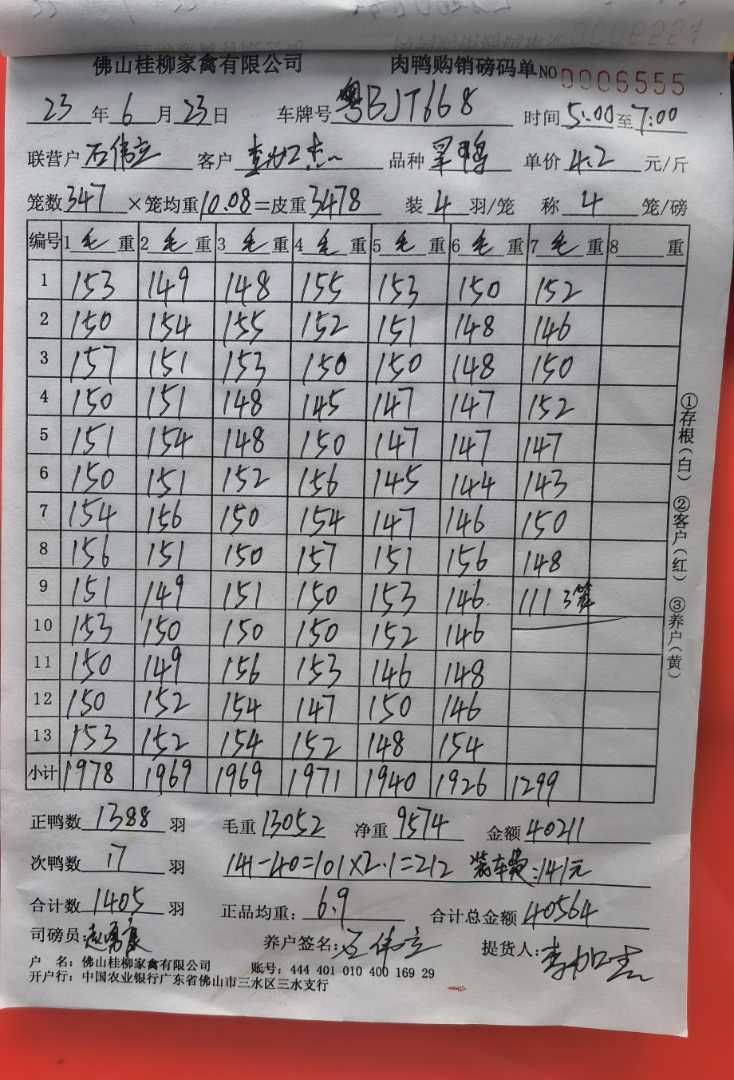 佛山桂柳家禽有限公司 肉鸭购销磅码单 NO 0006555
23 年 6 月 23 日 车牌号 粤BJT668 时间 5:00 至 7:00
联营户 石伟立 客户 品种 单价 4.2 元/斤
笼数 347 ×笼均重 10.08 =皮重 3478 装 4 羽/笼 称 4 笼/磅
编号 1 毛 重 2 毛 重 3 毛 重 4 毛 重 5 毛 重 6 毛 重 7 毛 重 8 重
1 153 149 148 155 153 150 152
2 150 154 155 152 151 148 146
3 157 151 153 150 150 148 150
4 150 151 148 145 147 147 152
5 151 154 148 150 147 147 147
6 150 151 152 156 145 144 143
7 154 156 150 154 147 146 150
8 156 151 150 157 151 156 148
9 151 149 151 150 153 146 111 3笼
10 153 150 150 150 152 146
11 150 149 156 153 146 148
12 150 152 154 147 150 146
13 153 152 154 152 148 154
小计 1978 1969 1969 1971 1940 1926 1299
正鸭数 1388 羽 毛重 13052 净重 9574 金额 40211
次鸭数 17 羽 141-40=101×2.1=212 装车费:141元
合计数 1405 羽 正品均重: 6.9 合计总金额 40564
司磅员: 养户签名: 石伟立 提货人:
户 名: 佛山桂柳家禽有限公司 账号: 444 401 010 400 169 29
开户行: 中国农业银行广东省佛山市三水区三水支行
①存根(白) ②客户(红) ③养户(黄)